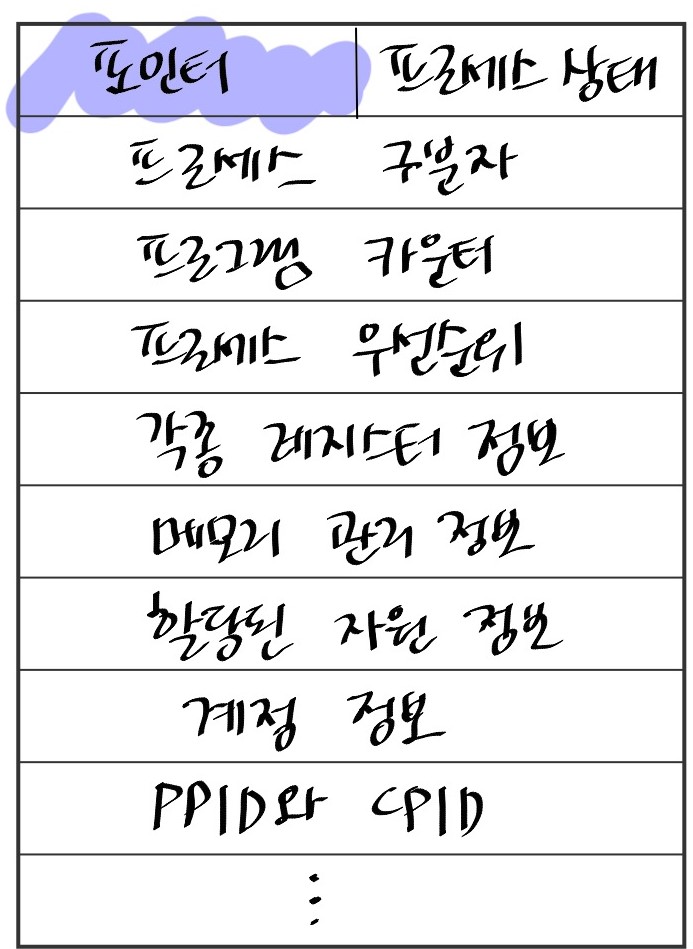 포인터 프로세스 상태
프로세스 구분자
프로그램 카운터
프로세스 우선순위
각종 레지스터 정보
메모리 관리 정보
할당된 자원 정보
계정 정보
PPID와 CPID
⋮